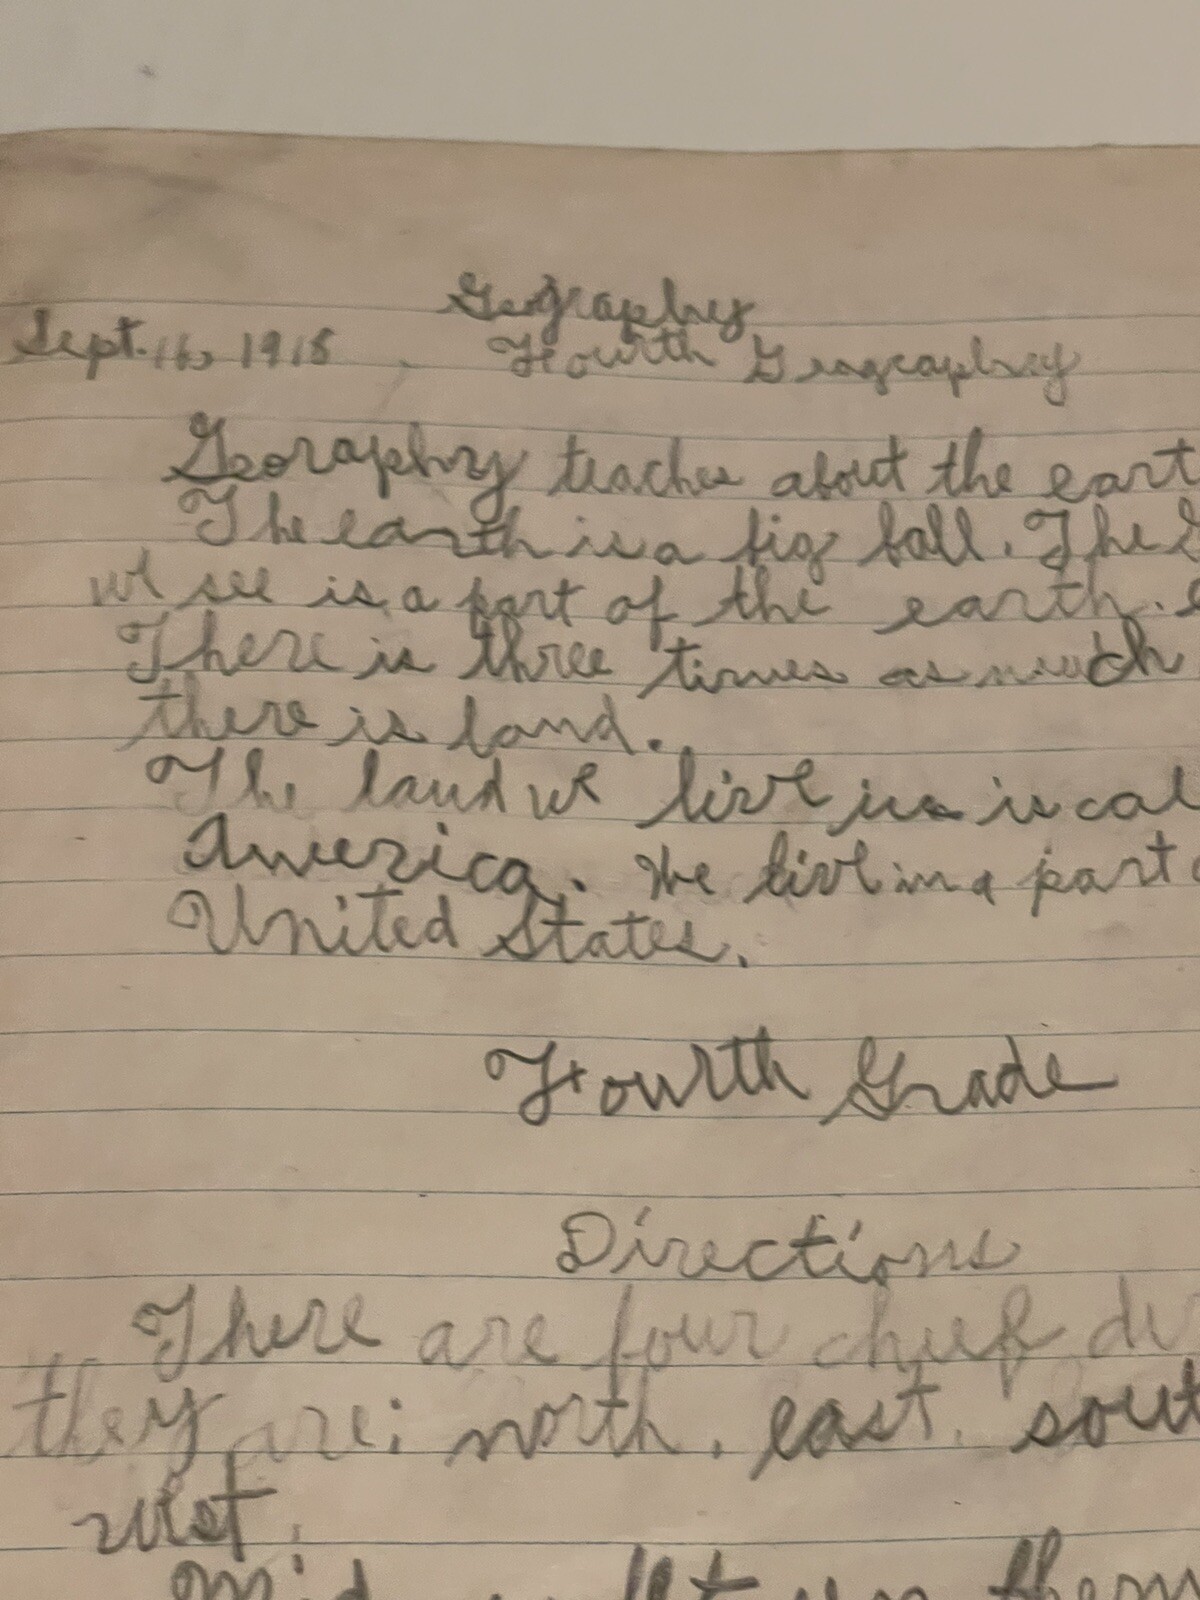 Geography
Sept. 16, 1918 Fourth Geography
Georaphy teaches about the eart
The earth is a big ball. The
we see is a part of the earth.
There is three times as much
there is land.
The land we live in is cal
America. We live in a part
United States.
Fourth Grade
Directions
There are four chief di
they are; north, east, sout
west.
them